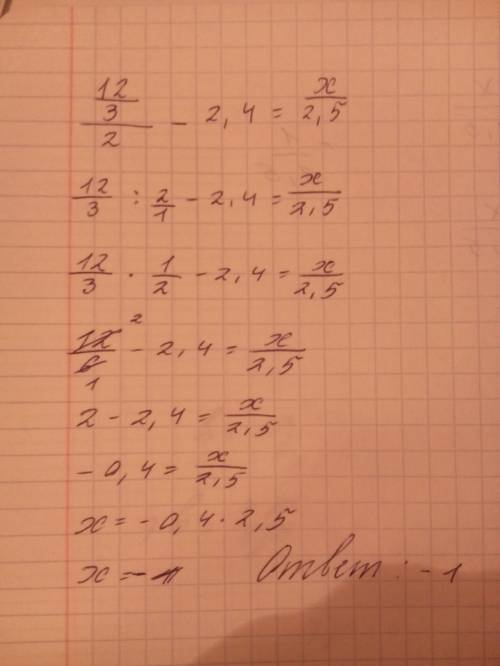 12/3/2 - 2,4 = x/2,5
12/3 : 2/1 - 2,4 = x/2,5
12/3 · 1/2 - 2,4 = x/2,5
12/6 2 1 - 2,4 = x/2,5
2 - 2,4 = x/2,5
-0,4 = x/2,5
x = -0,4 · 2,5
x = -1 Ответ: -1